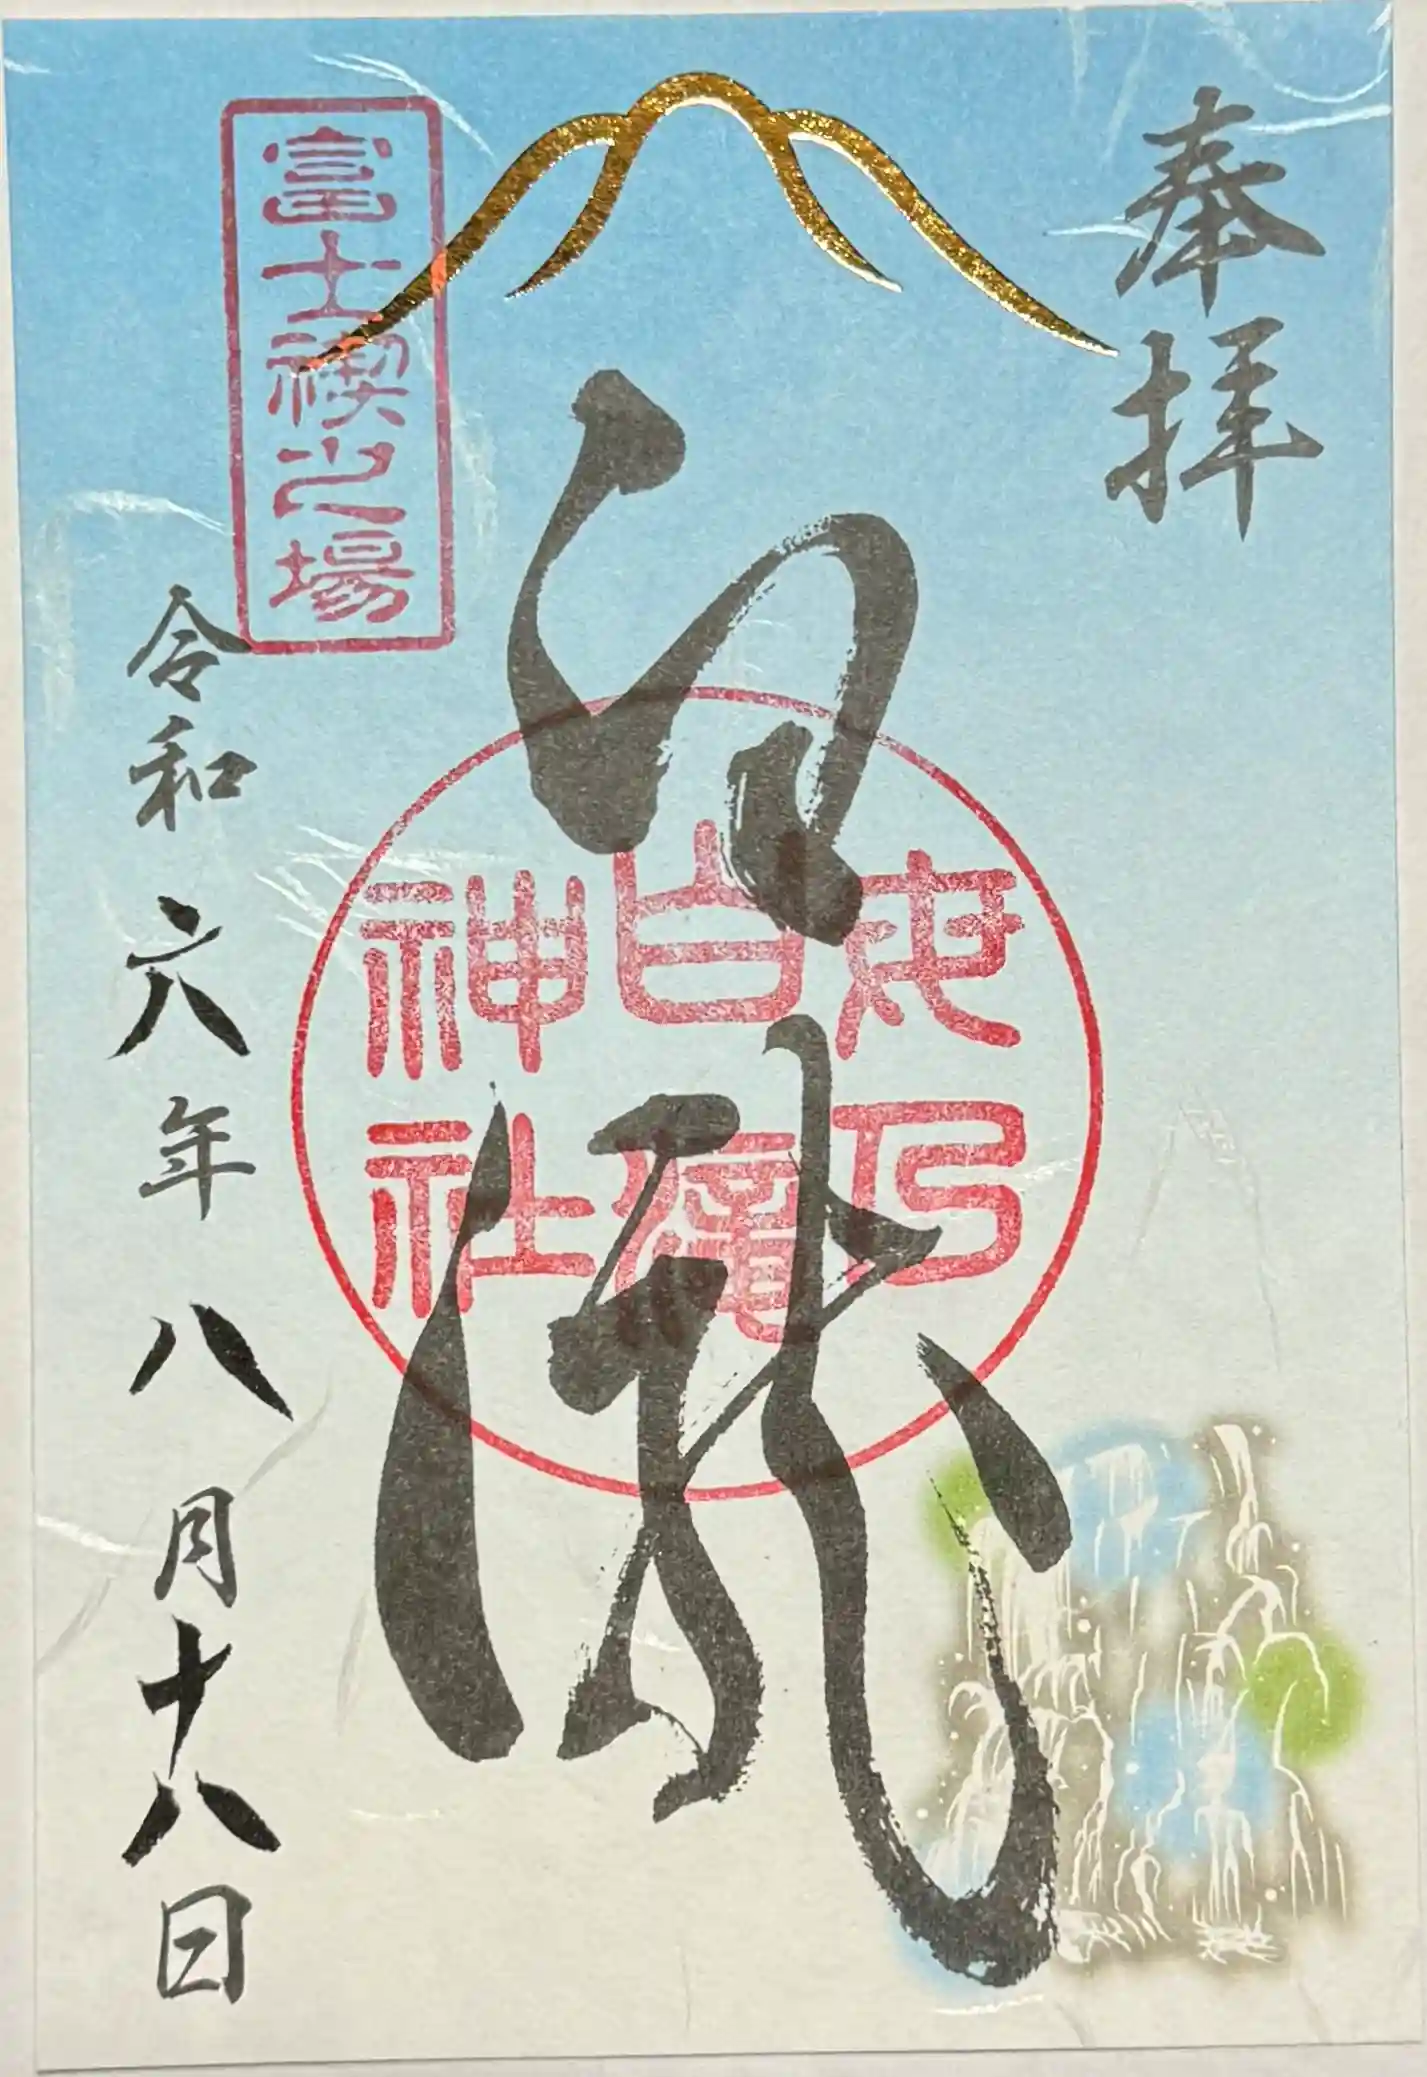 奉拝
白瀧
母乃
白瀧
神社
富士禊之場
令和六年八月十八日